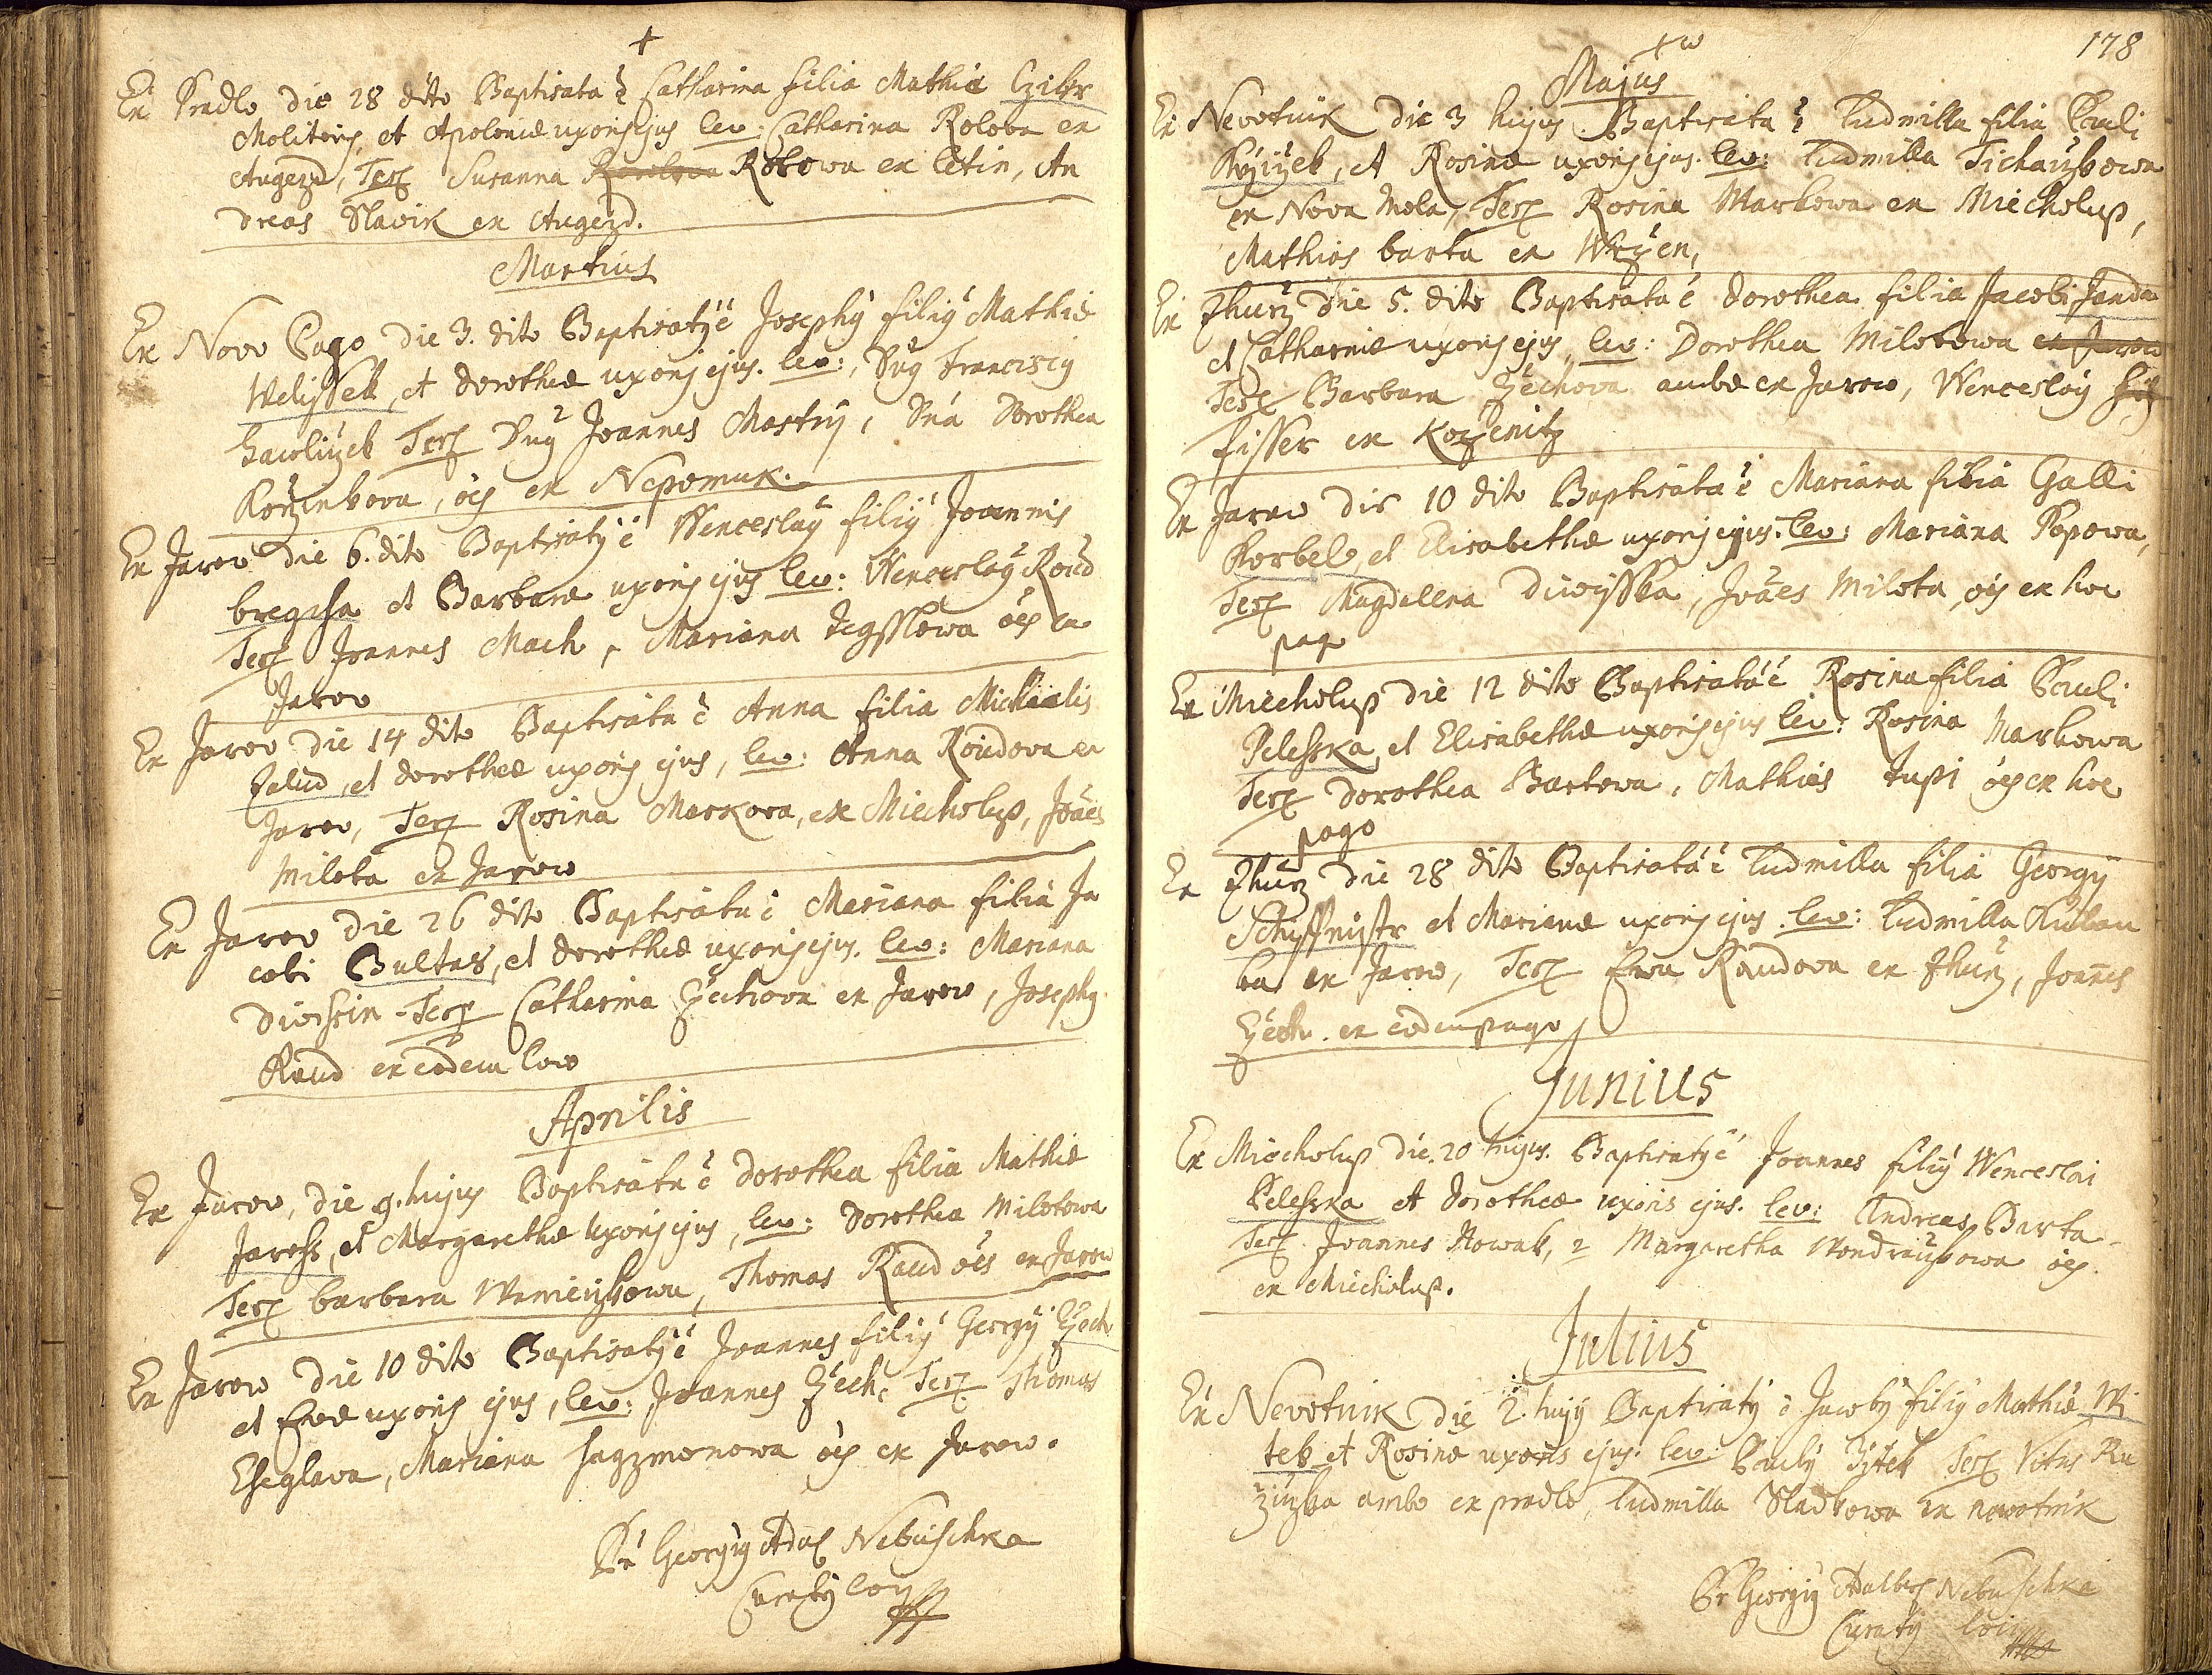 +
Ex Pradlo die 28 dito Baptisata ẽ Catharina filia Mathiæ Cziker
Molitoris, et Apoloniæ uxoris ejus lev: Catharina Rolova ex
Augezd, Test Susanna Rokowa ex Cetin, An
dreas Slavik ex Augezd.
Martius
Ex Novo Pago die 3. dito Baptisatus ẽ Josephus filius Mathiæ
Welissek, et Dorotheæ uxoris ejus. lev: Dnus Franciscus
Hawliczek Test Dnus Joannes Mastny, Dna Dorothea
Korzenkova, oes ex Nepomuk.
Ex Jarow die 6. dito Baptisatus ẽ Wenceslaus filius Joannis
bregcha et Barbaræ uxoris ejus lev: Wenceslaus Raud
Test Joannes Mach, Mariana oes ex
Jarow
Ex Jarow die 14 dito Baptisata ẽ Anna filia Michaelis
Zalud, et Dorotheæ uxoris ejus, lev: Anna Raudova ex
Jarow, Test Rosina Markova, ex Miecholup, Joaes
Milota ex Jarow
Ex Jarow die 26 dito Baptisata ẽ Mariana filia Ja
cobi Bultas, et Dorotheæ uxoris ejus. lev: Mariana
Divissin Test Catharina Czechova ex Jarow, Josephus
Raud ex eodem loco
Aprilis
Ex Jarow, die 9. hujus Baptisata ẽ Dorothea filia Mathiæ
Jaress, et Margarethæ Uxoris ejus, lev: Dorothea Milotowa
Test barbara Wanieczkowa, Thomas Raud oes ex Jarow
Ex Jarow die 10 dito Baptisatus ẽ Joannes filius Georgij Czech
et Evæ uxoris ejus, lev: Joannes Czech, Test Thomas
Cheglava, Mariana Hagzmanowa oes ex Jarow.
Pr Georgius Adal Nebuschka
Curatus loci
178
Majus
Ex Nevotnik die 3 hujus Baptisata ẽ Ludmilla filia Pauli
Krziczek, et Rosinæ uxoris ejus. lev: Ludmilla Tichaczkowa
ex Nova Mola, Test Rosina Markowa ex Miecholup,
Mathias barta ex Wrczen,
Ex Zhurz die 5. dito Baptisata ẽ Dorothea filia Jacobi Janda
et Catharinæ uxoris ejus, lev: Dorothea Milotowa ex Jarow
Test Barbara Czechova ambæ ex Jarow, Wenceslaus
fisser ex Kozenitz
Ex Jarow die 10 dito Baptisata ẽ Mariana filia Galli
Korbel, et Elisabethæ uxoris ejus. lev: Mariana Popowa,
Test Magdalena Diwisska, Joaes Milota, oes ex hoc
pago
Ex Miecholup die 12 dito Baptisata ẽ Rosina filia Pauli
Pelesska, et Elisabethæ uxoris ejus lev: Rosina Markowa
Test Dorothea Bartowa, Mathias Tupi oes ex hoc
pago
Ex Zhurz die 28 dito Baptisata ẽ Ludmilla filia Georgij
Schiffmistr et Marianæ uxoris ejus. lev: Ludmilla Kulau
ka ex Jarow, Test Ewa Raudova ex Zhurz, Joannes
Czech. ex eodem pago
Junius
Ex Miecholup die 20 hujus. Baptisatus ẽ Joannes filius Wenceslai
Pelesska et Dorotheæ uxoris ejus. lev: Andreas Barta
Test Joannes Nowak, 2 Margaretha Wondraczkowa oes
ex Miecholup.
Julius
Ex Nevotnik die 2. hujus Baptisatus ẽ Jacobus filius Mathiæ Wi
tek et Rosinæ uxoris ejus. lev: Paulus Zitek Test Vitus Ru
ziczka ambo ex pradlo Ludmilla Sladkowa ex nevotnik
Pr Georgius Adalber Nebuschka
Curatus loci